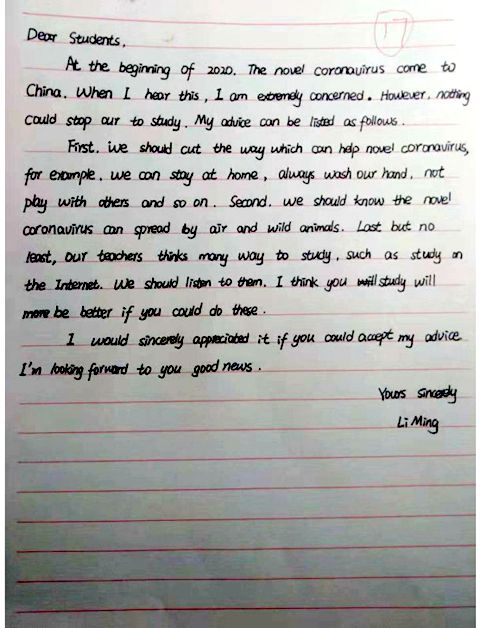 17
Dear Students,
At the beginning of 2020. The novel coronavirus come to
China. When I hear this, I am extremely concerned. However, nothing
could stop our to study. My advice can be listed as follows.
First. we should cut the way which can help novel coronavirus,
for example. we can stay at home, always wash our hand, not
play with others and so on. Second. we should know the novel
coronavirus can spread by air and wild animals. Last but no
least, our teachers thinks many way to study, such as study on
the Internet. We should listen to them. I think you will study will
more be better if you could do these.
I would sincerely appreciated it if you could accept my advice
I'm looking forward to you good news.
Yours sincerely
Li Ming